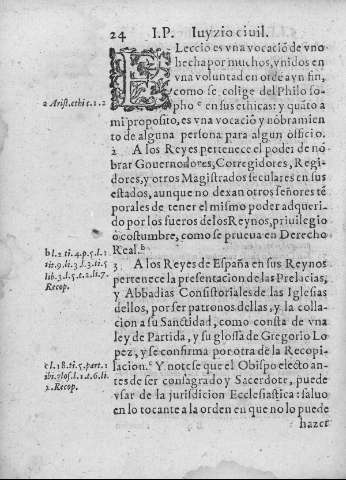 24 I.P. Iuyzio ciuil.
ELeccio es vna vocació de vno
hecha por muchos, vnidos en
vna voluntad en ordé a yn fin,
como se colige del Philoso
phoᵃ en sus ethicas: y quáto a
mi proposito, es vna vocació y nóbramien
to de alguna persona para algun officio.
2 A los Reyes pertenece el poder de nó
brar Gouernodores, Corregidores, Regi-
dores, y otros Magistrados seculares en sus
estados, aunque no dexan otros señores té
porales de tener el mismo poder adqueri-
do por los fueros de los Reynos, priuilegio
ò costumbre, como se prueua en Derecho
Real.ᵇ
3 A los Reyes de España en sus Reynos
pertenece la presentacion de las Prelacias,
y Abbadias Consistoriales de las Iglesias
dellos, por ser patronos dellas, y la colla-
cion a su Sanctidad, como consta de vna
ley de Partida, y su glossa de Gregorio Lo
pez, y se confirma por otra de la Recopi-
lacion.ᶜ Y note se que el Obispo electo an-
tes de ser consagrado y Sacerdote, puede
vsar de la jurisdicion Ecclesiastica: saluo
en lo tocante a la orden en que no lo puede
hazer
a Arist. ethi c. 1. 2
b l. 2. ti. 4. p. 5. l. 1
tit. 9. li. 3. l. 3. ti. 5
lib. 3. l. 5. t. 2. li. 7.
Recop.
c l. 18. ti. 5. part. 1
ibi glos. l. 1. t. 6. li.
2. Recop.